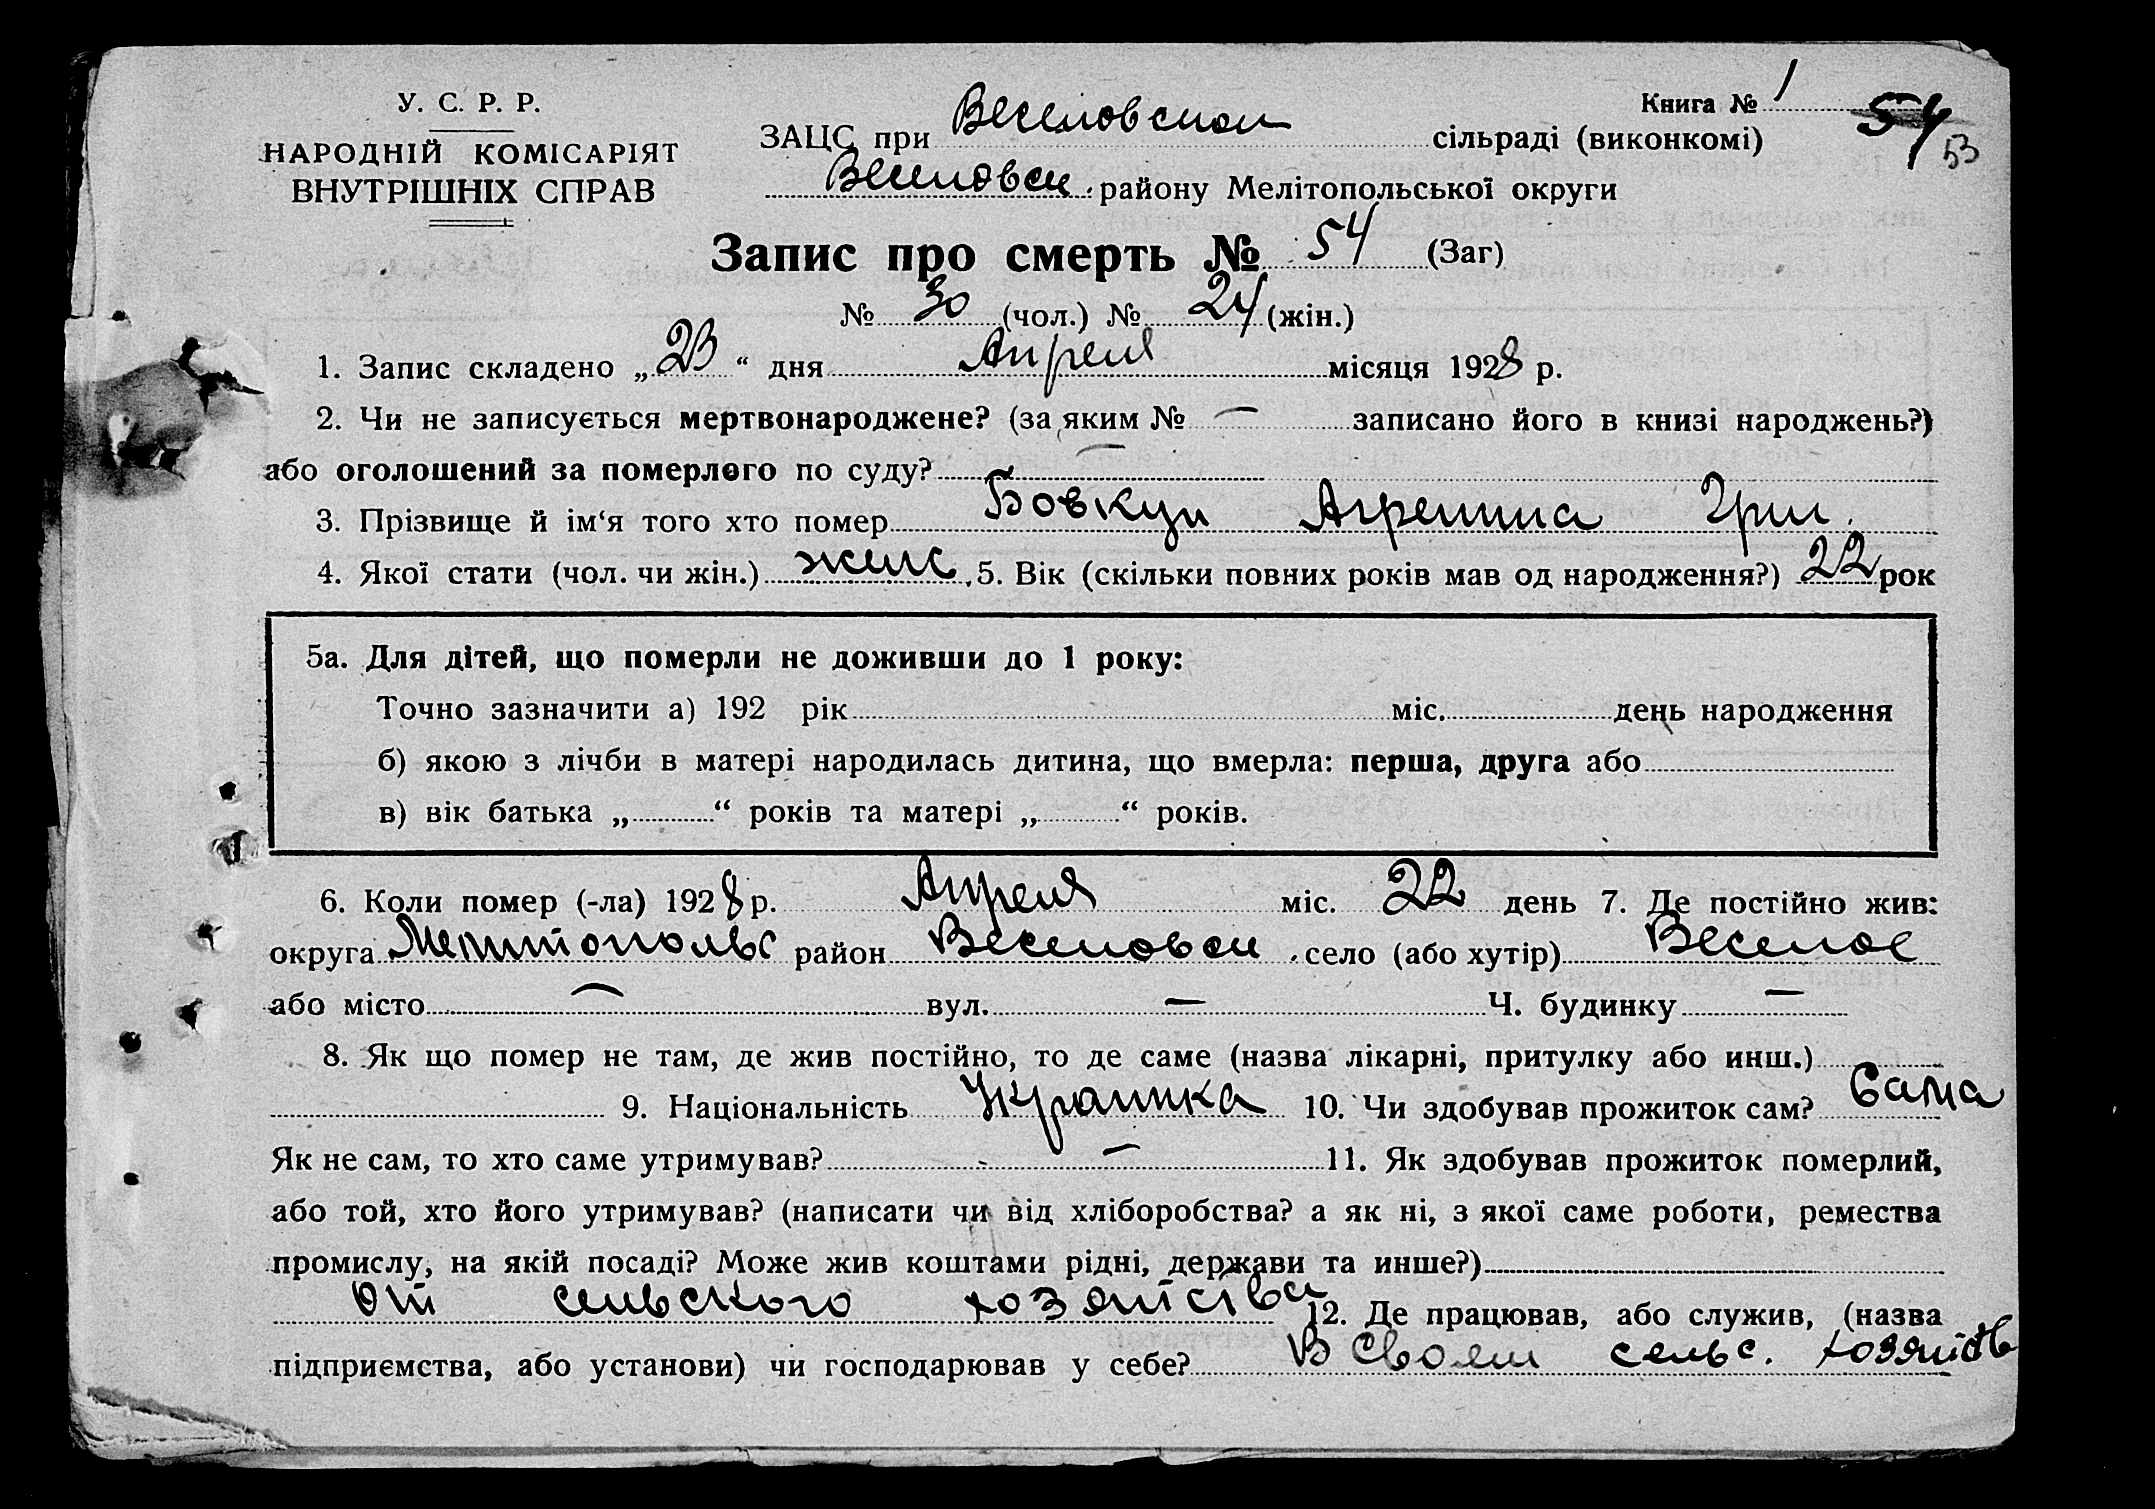 У. С. Р. Р.
НАРОДНІЙ КОМІСАРІЯТ
ВНУТРІШНІХ СПРАВ
Книга № 1
54
53
ЗАЦС при Веселовском сільраді (виконкомі)
Веселовск. району Мелітопольської округи
Запис про смерть № 54 (Заг)
№ 30 (чол.) № 24 (жін.)
1. Запис складено „23“ дня Апреля місяця 1928 р.
2. Чи не записується мертвонароджене? (за яким № — записано його в книзі народжень?)
або оголошений за померлого по суду? —
3. Прізвище й ім‘я того хто помер Бовкун Агрепина Гри.
4. Якої стати (чол. чи жін.) женс. 5. Вік (скільки повних років мав од народження?) 22 рок
5а. Для дітей, що померли не доживши до 1 року:
Точно зазначити а) 192 рік міс. день народження
б) якою з лічби в матері народилась дитина, що вмерла: перша, друга або
в) вік батька „ “ років та матері „ “ років.
6. Коли помер (-ла) 1928 р. Апреля міс. 22 день 7. Де постійно жив:
округа Мелитопольс район Веселовск. село (або хутір) Веселое
або місто — вул. — Ч. будинку —
8. Як що помер не там, де жив постійно, то де саме (назва лікарні, притулку або инш.)
9. Національність Украинка 10. Чи здобував прожиток сам? Сама
Як не сам, то хто саме утримував? — 11. Як здобував прожиток померлий,
або той, хто його утримував? (написати чи від хліборобства? а як ні, з якої саме роботи, ремества
промислу, на якій посаді? Може жив коштами рідні, держави та инше?)
От сельского хозяйства 12. Де працював, або служив, (назва
підприємства, або установи) чи господарював у себе? В своем сельс. хозяйств